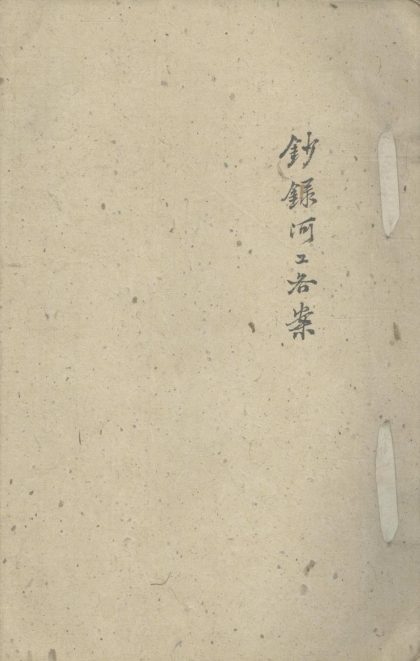 鈔錄河工各案